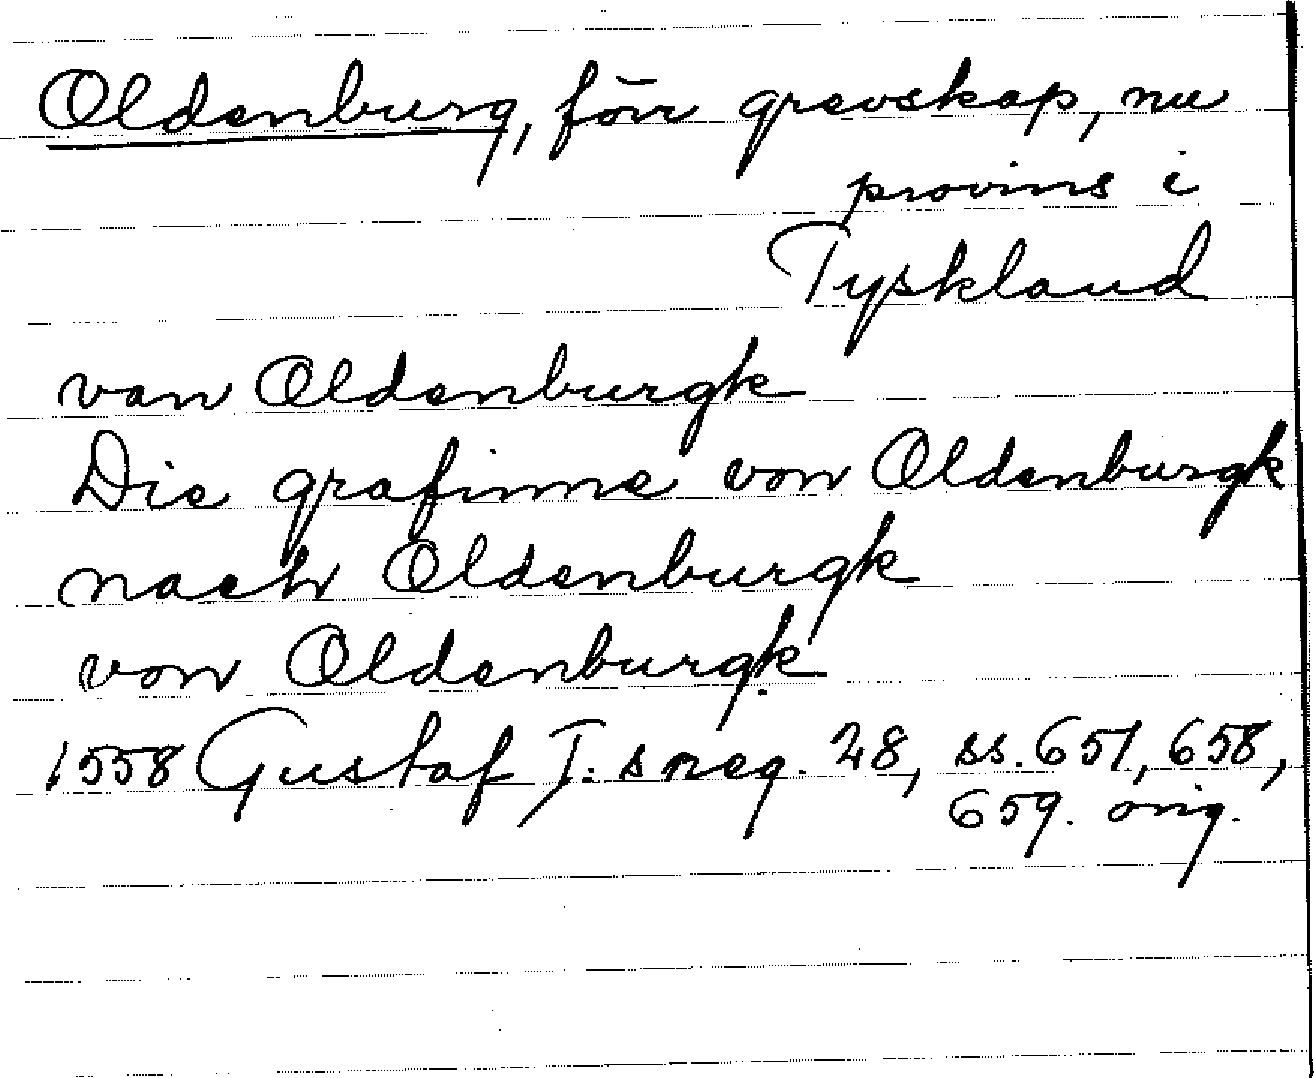 Oldenburg, förr grevskap, nu
provins i
Tyskland
van Oldenburgk
Die grafinne von Oldenburgk
nach Oldenburgk
von Oldenburgk
1558 Gustaf I:s reg. 28, ss. 651, 658,
659. orig.